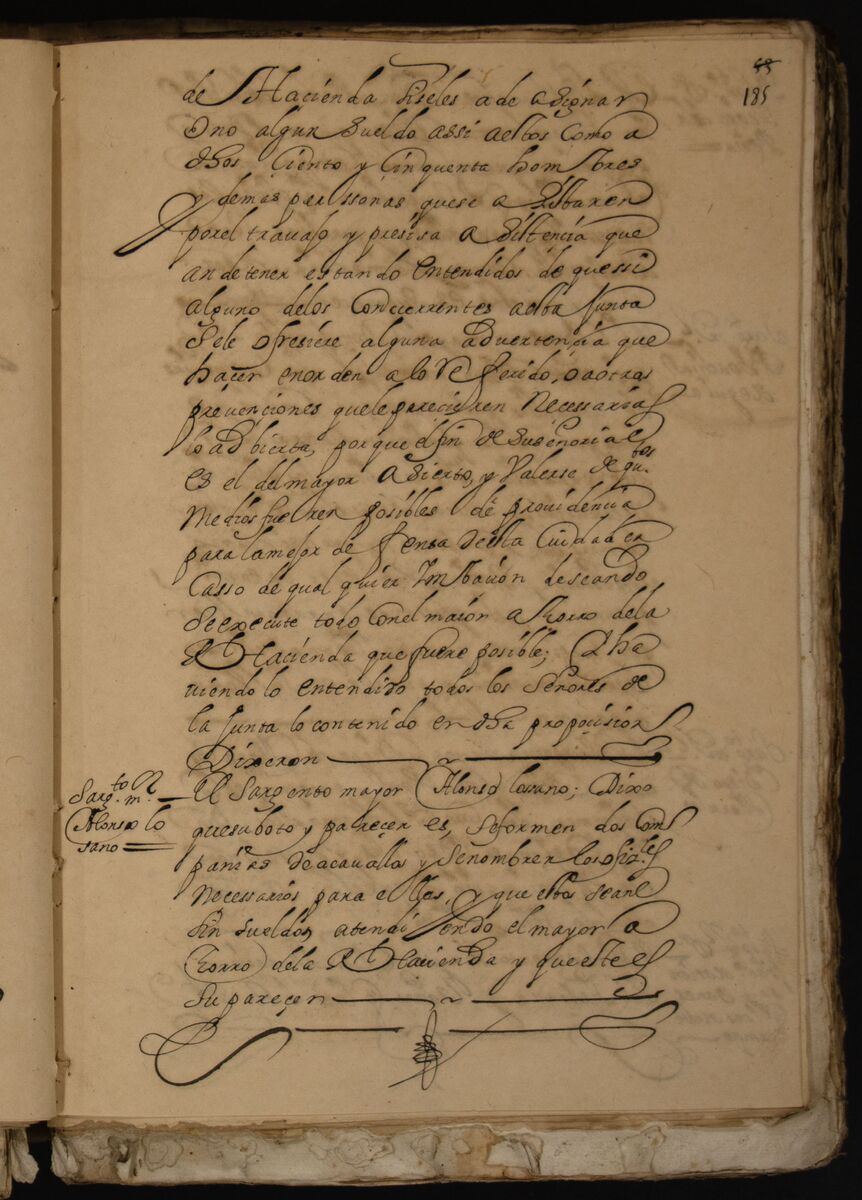 55
185
de Hacienda siseles a de asignar
o no algun sueldo assi aestos como a
dhos ciento y cinquenta hombres
y demas perssonas que se alistaren
porel travajo y presisa asistencia que
an detener estando entendidos de quessi
alguno delos concurrentes aesta Junta
sele ofresiere alguna advertencia que
haçer enorden a lo referido, o a otras
prevenciones quele parecieren necessarias
lo adbierta, porque el fin de su señoria es
es el del mayor asierto, y valerse de qtos
medios fueren posibles de providencia
para la mejor defensa desta Ciudad en
casso de qual quier Imbacion deseando
se execute todo conel maior ahorro dela
Rl Hacienda que fuere posible; Y ha
viendolo entendido todos los señores de
la Junta lo contenido en dha proposision
Dixeron
Sargto m.r
Alonso lo
sano
El Sargento mayor Alonso losano; Dixo
que su boto y pareçer es, se formen dos com
panias de acavallo y se nombren los ofizles
necessarios para ellas, y que estos sean
sin sueldo, atendiendo el mayor a
horro dela Rl Hacienda y que este es
su pareçer